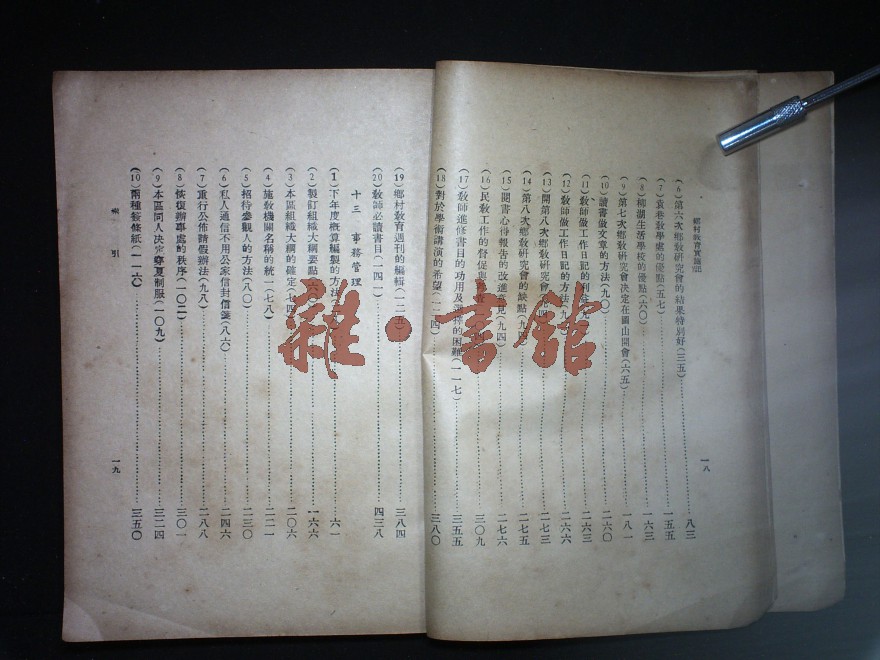 鄉村教育實驗記
(6)第六次鄉教研究會的結果特別好(三五)……八三
(7)袁巷教學處的優點(五七)……一五五
(8)柳湖生活學校的優點(六〇)……一六三
(9)第七次鄉教研究會決定在圌山開會(六五)……一八一
(10)讀書做文章的方法(九〇)……二六〇
(11)教師做工作日記的利益……二六三
(12)教師做工作日記的方法……二六六
(13)開第八次鄉教研究會……二七三
(14)第八次鄉教研究會的缺點(九四)……二七五
(15)閱書心得報告的改進意見(九四)……二七六
(16)民教工作的督促與……三〇九
(17)教師進修書目的功用及選擇的困難(一一七)……三五五
(18)對於學術講演的希望(一二四)……三八〇
一八
(19)鄉村教育週刊的編輯(一二五)……三八四
(20)教師必讀書目(一四一)……四三八
十三 事務管理
(1)下年度概算編製的方法……六一
(2)製訂組織大綱要點(六〇)……一六六
(3)本區組織大綱的確定(七四)……二〇六
(4)施教機關名稱的統一(七八)……二二一
(5)招待參觀人的方法(八〇)……二三〇
(6)私人通信不用公家信封信箋(八六)……二四六
(7)重行公佈請假辦法(九八)……二八八
(8)恢復辦事處的秩序(一〇二)……三〇一
(9)本區同人決定穿夏制服(一〇九)……三二四
(10)兩種簽條紙(一一六)……三五〇
索引
一九
雜·書館